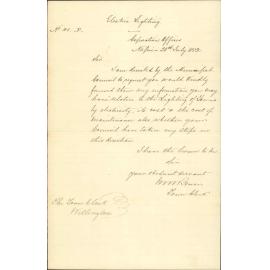 Electric Lighting
Corporation Offices
Napier 28th July 1888
Sir
I am directed by the Municipal
Council to request you would kindly
furnish them any information you may
have relative to the Lighting of Towns
by electricity, its cost & the cost of
maintenance also whether your
Council have taken any steps in
this direction
I have the honor to be
Sir
your obedient servant
Town Clerk
The Town Clerk
Wellington